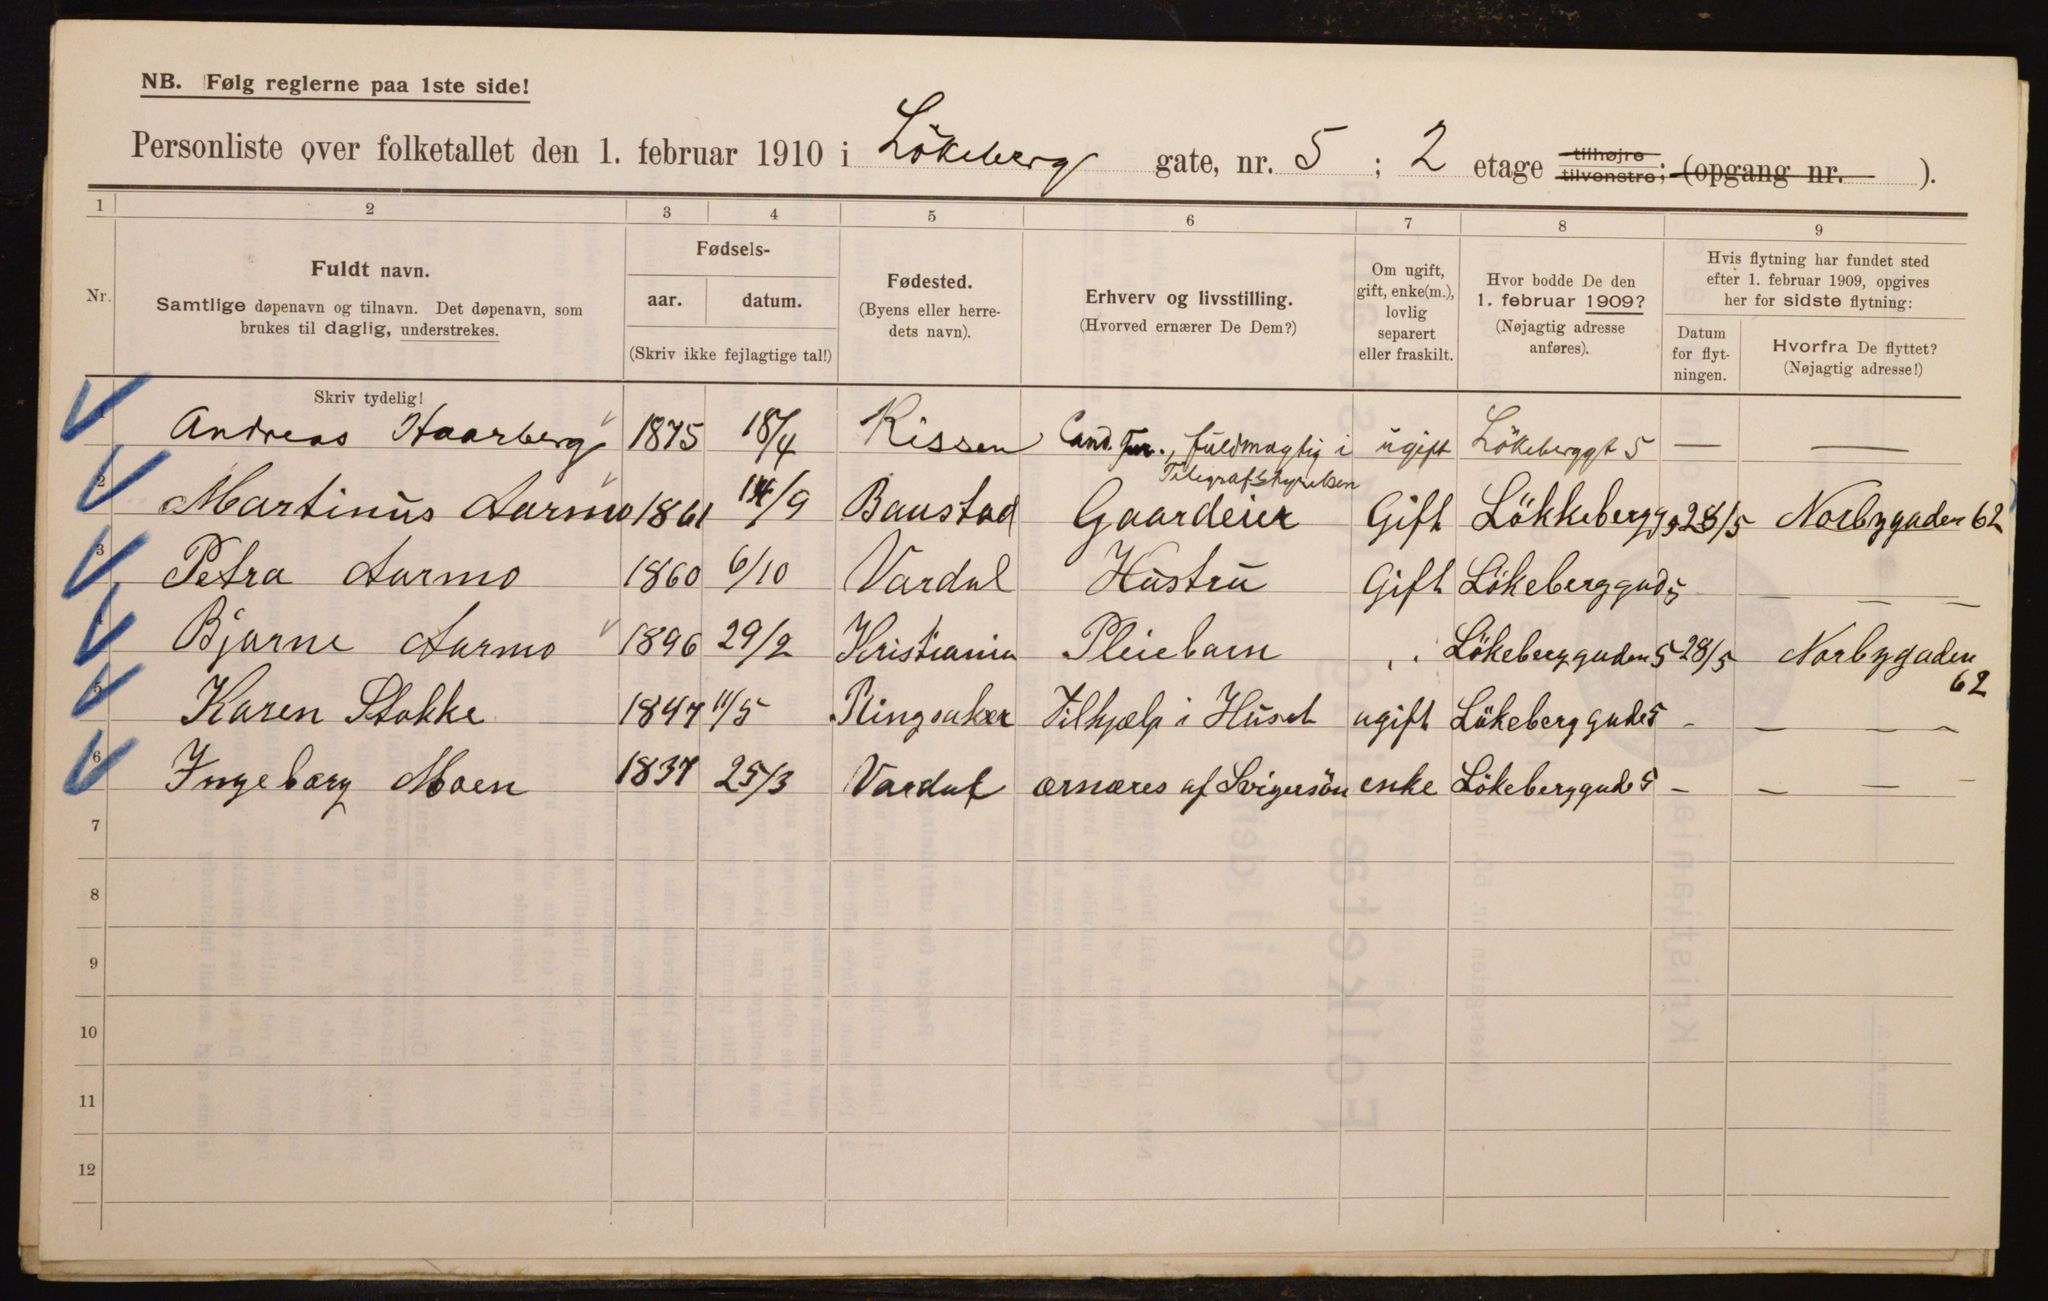 NB. Følg reglerne paa 1ste side!
Personliste over folketallet den 1. februar 1910 i Lökeberg gate, nr. 5 ; 2 etage tilhøjre tilvenstre; (opgang nr. ).
1 2 3 4 5 6 7 8 9
Nr.
Fuldt navn.
Samtlige døpenavn og tilnavn. Det døpenavn, som
brukes til daglig, understrekes.
Skriv tydelig!
Fødsels-
aar. datum.
(Skriv ikke fejlagtige tal!)
Fødested.
(Byens eller herre-
dets navn).
Erhverv og livsstilling.
(Hvorved ernærer De Dem?)
Om ugift,
gift, enke(m.),
lovlig
separert
eller fraskilt.
Hvor bodde De den
1. februar 1909?
(Nøjagtig adresse
anføres).
Hvis flytning har fundet sted
efter 1. februar 1909, opgives
her for sidste flytning:
Datum
for flyt-
ningen.
Hvorfra De flyttet?
(Nøjagtig adresse!)
1 Andreas Haarberg 1875 18/4 Rissen Cand. jur., fuldmægtig i ugift Lökeberggt 5 — —
Telegrafstyrelsen
2 Martinus Aarmo 1861 14/9 Baustad Gaardeier Gift Lökkebergg 5 28/5 Norbygaden 62
3 Petra Aarmo 1860 6/10 Vardal Hustru Gift Lökeberggad 5 — — —
4 Bjarne Aarmo 1896 29/2 Kristiania Pleiebarn „ Lökeberggaden 5 28/5 Norbygaden
62
5 Karen Stokke 1847 11/5 Ringsaker Tilhjælp i Huset ugift Lökeberggade 5 - — — —
6 Ingeborg Moen 1837 25/3 Vardal ærnæres af Svigersön enke Lökeberggade 5 - — — -
7
8
9
10
11
12